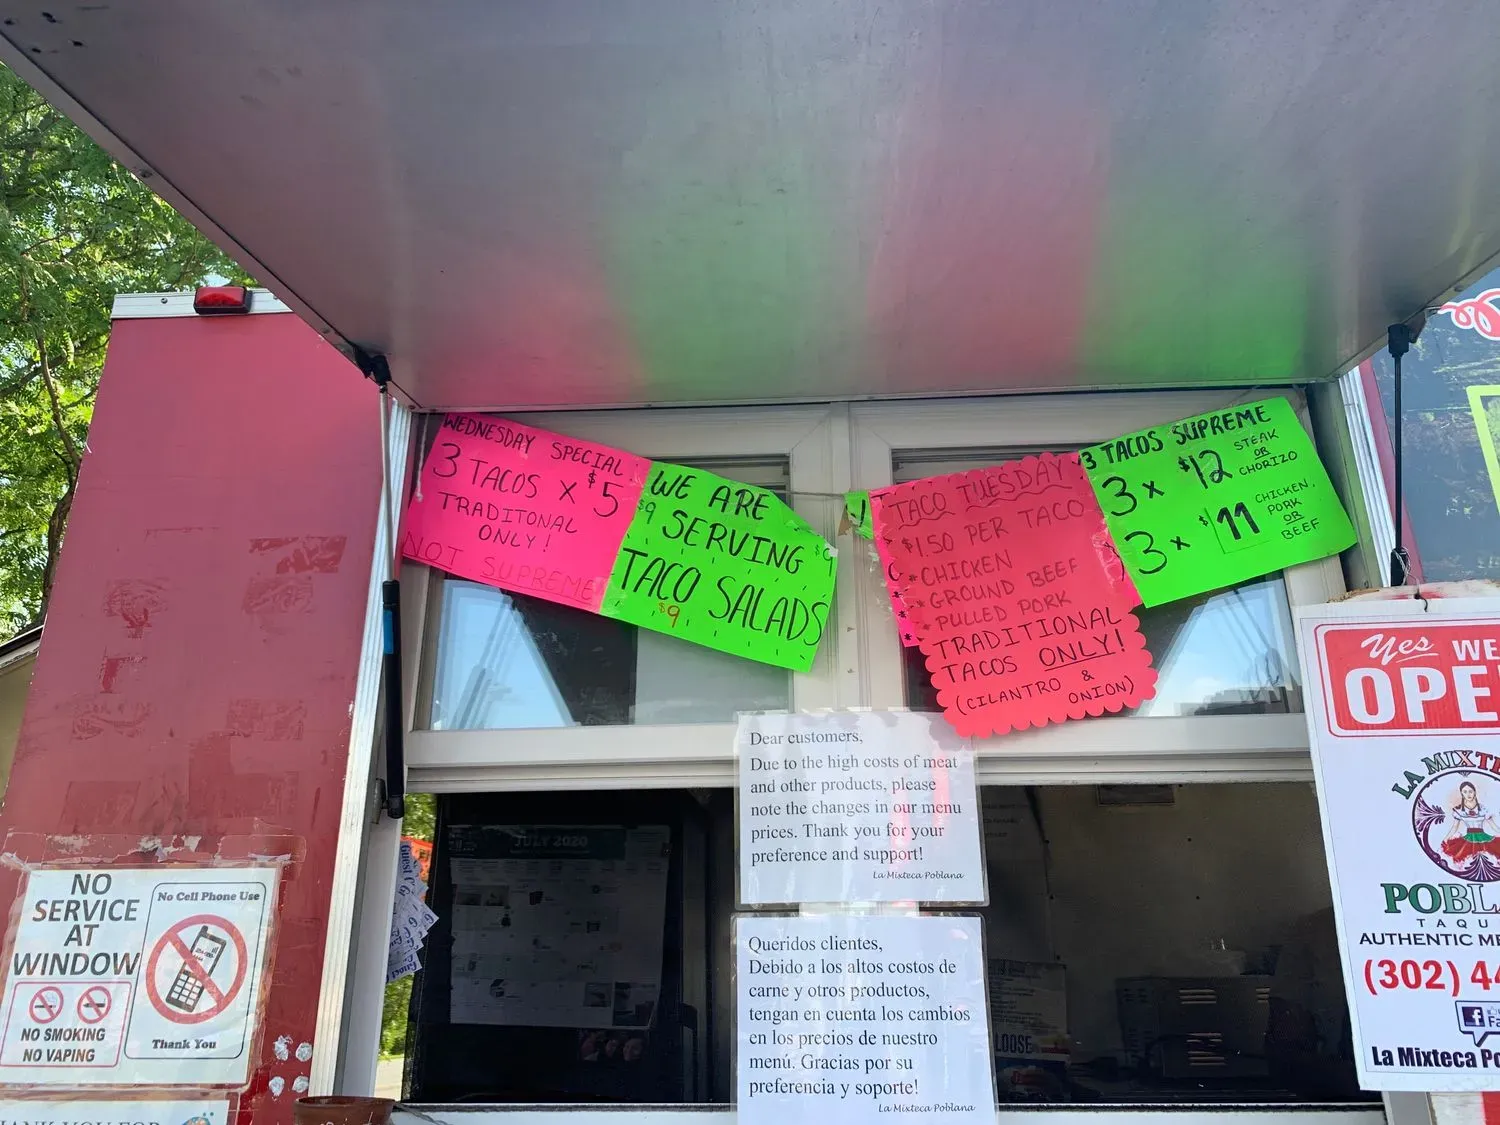 WEDNESDAY SPECIAL!
3 TACOS x $5
TRADITONAL
ONLY!
NOT SUPREME
WE ARE
$9 SERVING $9
TACO SALADS
$9
TACO TUESDAY
$1.50 PER TACO
* CHICKEN
* GROUND BEEF
* PULLED PORK
TRADITIONAL
TACOS ONLY!
(CILANTRO &
ONION)
3 TACOS SUPREME
3 x $12 STEAK
OR
CHORIZO
3 x $11 CHICKEN,
PORK
OR
BEEF
Dear customers,
Due to the high costs of meat
and other products, please
note the changes in our menu
prices. Thank you for your
preference and support!
La Mixteca Poblana
Queridos clientes,
Debido a los altos costos de
carne y otros productos,
tengan en cuenta los cambios
en los precios de nuestro
menú. Gracias por su
preferencia y soporte!
La Mixteca Poblana
NO
SERVICE
AT
WINDOW
NO SMOKING
NO VAPING
No Cell Phone Use
Thank You
JULY 2020
LOOSE
Yes WE
OPE
LA MIXTE
POBLA
TAQU
AUTHENTIC ME
(302) 44
La Mixteca Po